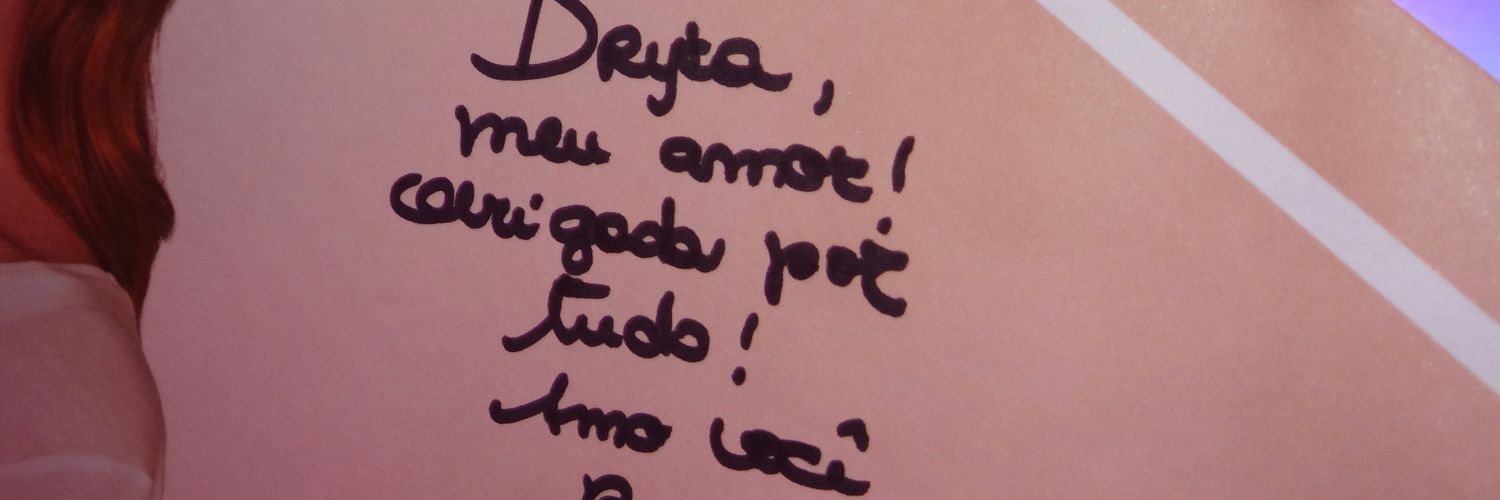 Dryta,
meu amor!
obrigada por
tudo!
Amo você